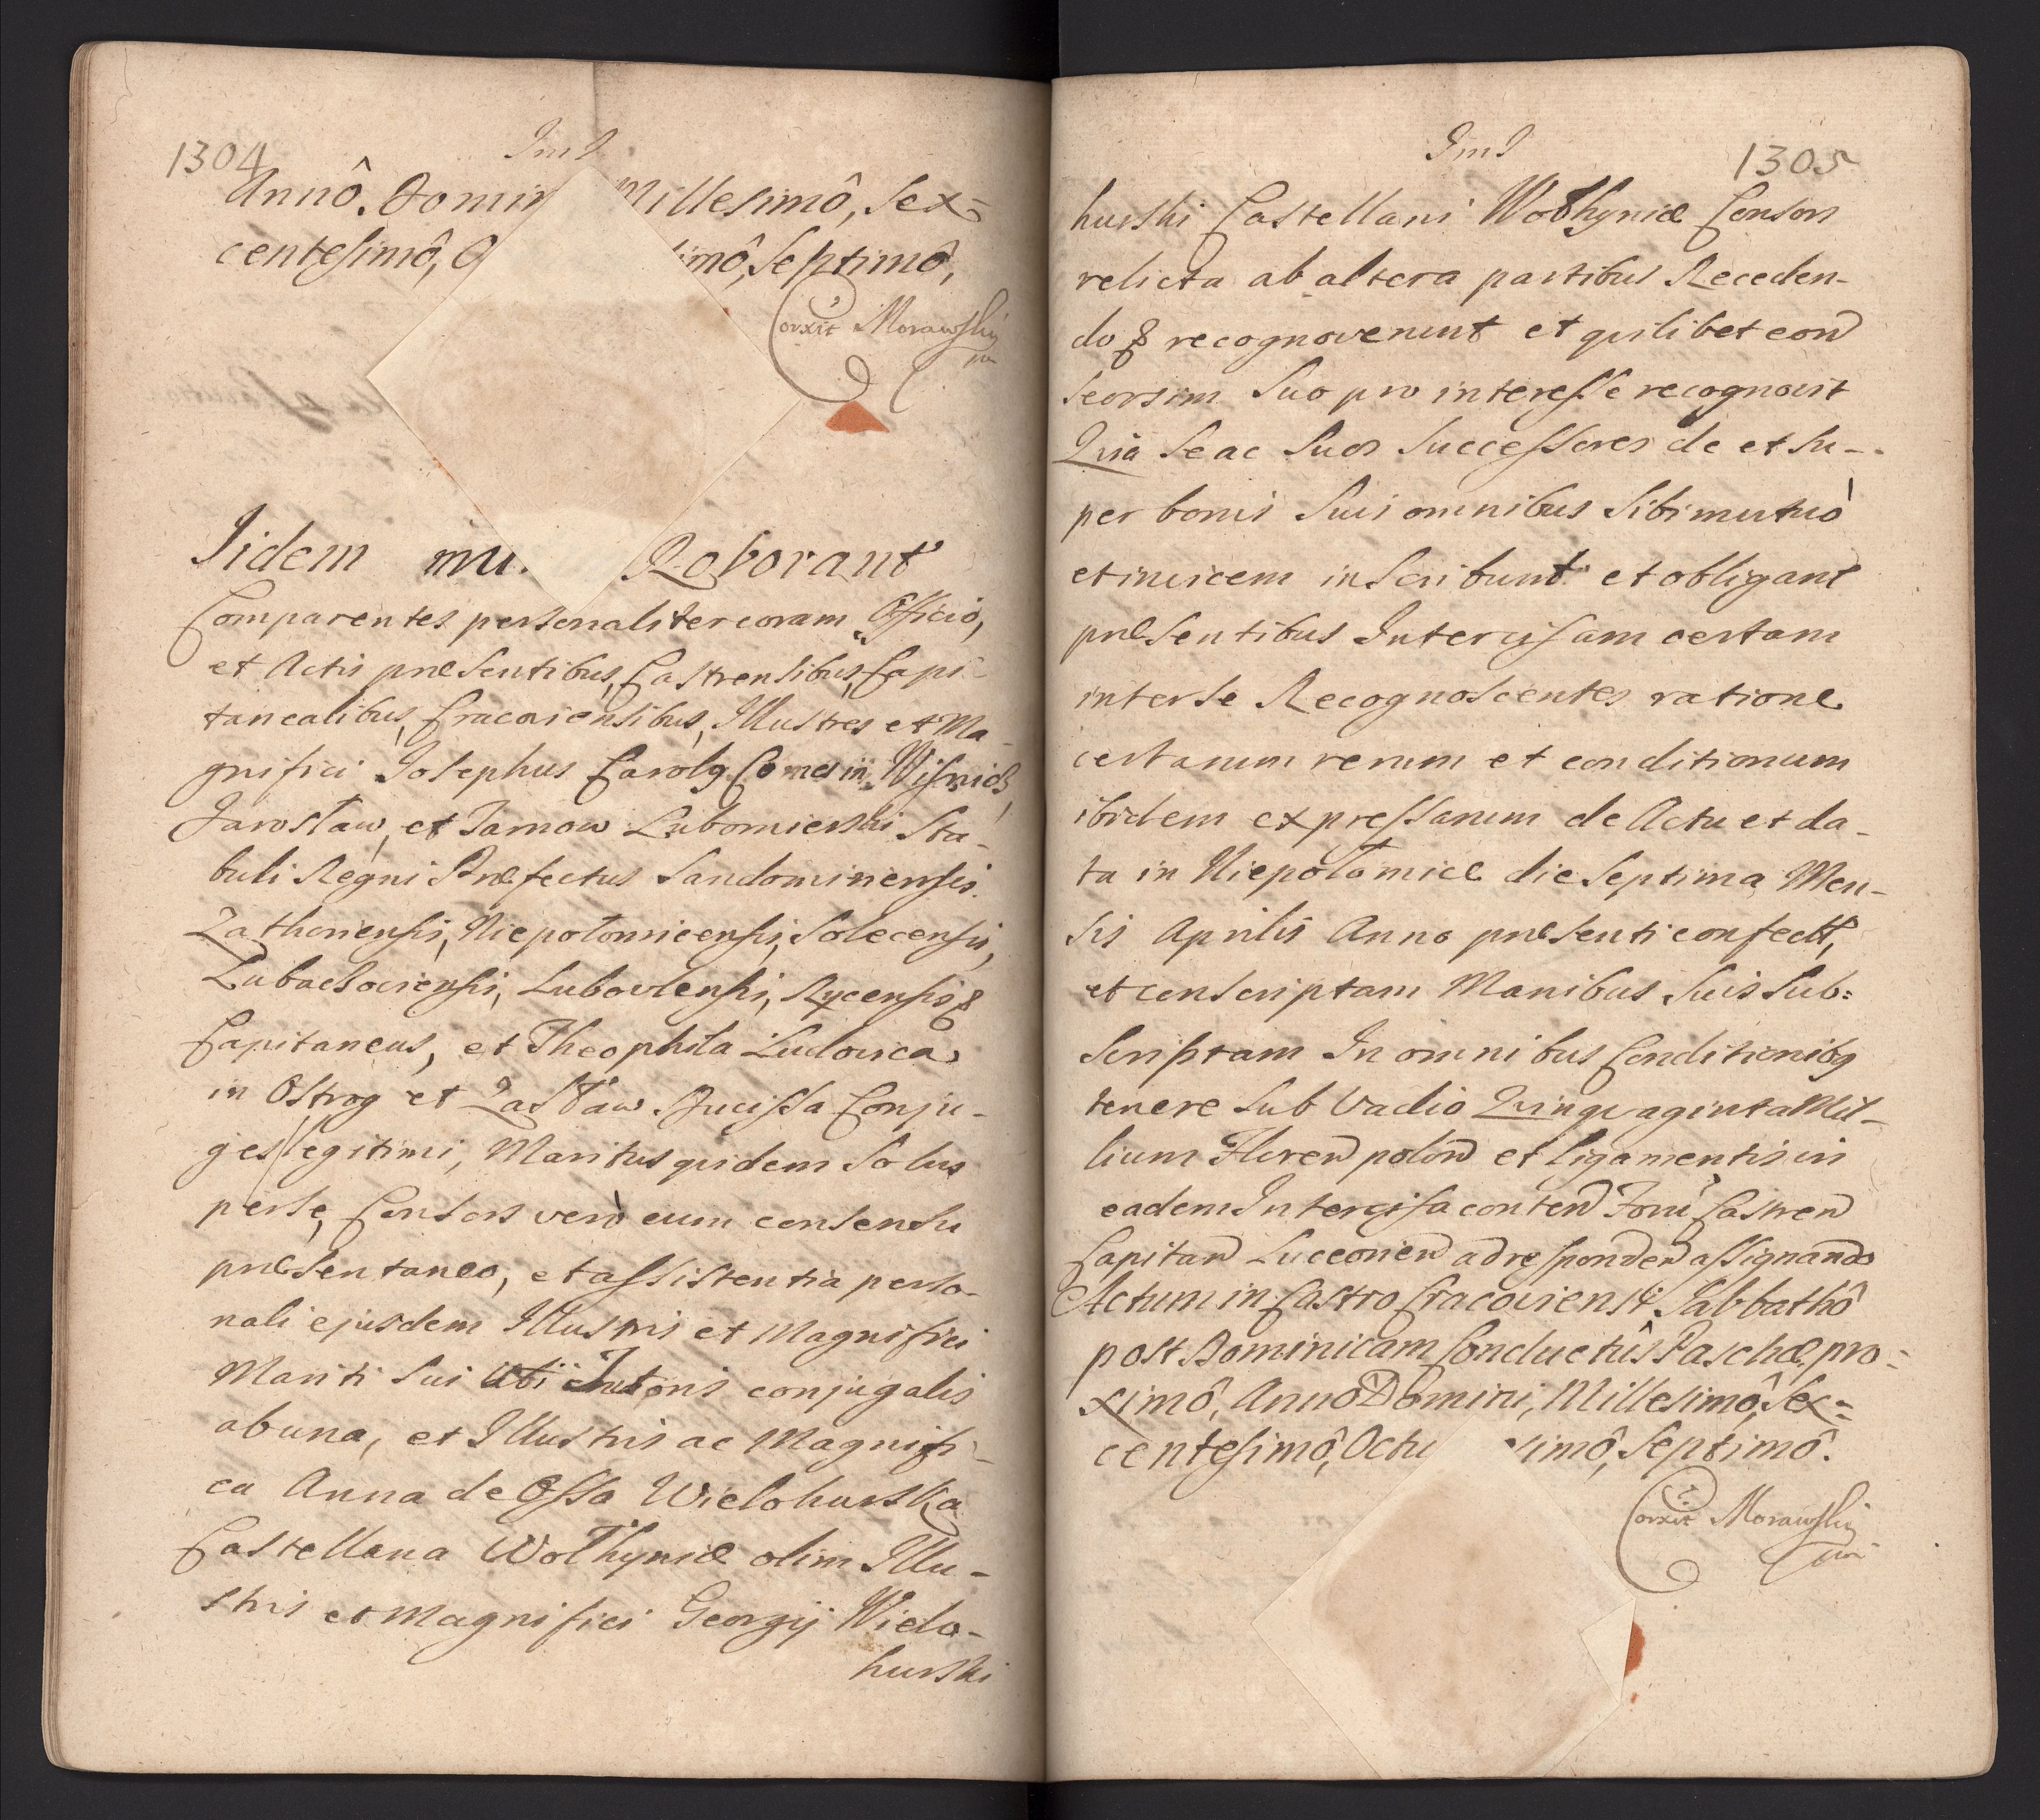 1304
Annô Domin Millesimô, Sex-
centesimô, O imô, Septimô,
Corxit Morawski
mp
Iidem mu. Roborant
Comparentes personaliter coram Officio,
et Actis præsentibus, Castrensibus, Capi-
tanealibus, Cracoviensibus, Illustres et Ma-
gnifici Josephus Carolg Comes in Wisnicz,
Jarosław, et Tarnow Lubomierski Sta-
buli Regni Præfectus Sandomiriensis.
Zathoriensis, Niepołomicensis, Solecensis,
Lubaczoviensis, Lubovlensis, Rycensis &
Capitaneus, et Theophila Ludovica
in Ostrog et Zasław Ducissa Conju-
ges legitimi, Maritus quidem Solus
perse, Consors verò cum consensu
præsentaneo, et assistentia perso-
nali ejusdem Illustris et Magnifici
Mariti Sui Uti Tutoris conjugalis
abuna, et Illustris ac Magnifi-
ca Anna de Ossa Wielohurska
Castellana Wołhyniæ olim Illu-
stris et Magnifici Georgij Wielo-
hurski
1305
hurski Castellani Wołhyniæ Consors
relicta ab altera partibus Receden-
do & recognoverunt et quilibet eorum
Seorsim Suo pro interesse recognovit
Quia Se ac Suos Successores de et Su-
per bonis Suis omnibus Sibi mutuò
et invicem inscribunt et obligant
præsentibus Intercisam certam
inter Se Recognoscentes ratione
certarum rerum et conditionum
ibidem expressarum de Actu et da-
ta in Niepołomice die Septima Men-
sis Aprilis Anno præsenti confect,
et conscriptam Manibus Suis Sub=
Scriptam In omnibus Conditionibg
tenere Sub Vadio Quinquaginta Mil-
lium Floren polon et ligamentis in
eadem Intercisa conten Fori Castren
Capitan Luceorien ad responden assignando
Actum in Castro Cracoviensi Sabbathô
post Dominicam Conductûs Paschæ pro=
ximô, Annô Domini, Millesimô, Sex=
centesimô, Octu simô, Septimô.
Corxit Morawski
mp